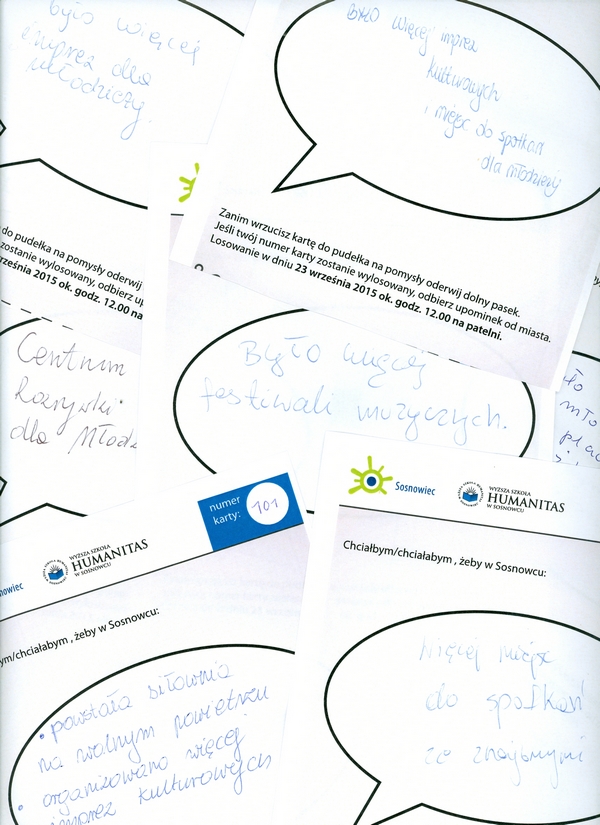 było więcej
imprez dla
młodzieży.
BYŁO więcej imprez
kulturowych
i miejsc do spotkań
dla młodzieży
Zanim wrzucisz kartę do pudełka na pomysły oderwij dolny pasek.
Jeśli twój numer karty zostanie wylosowany, odbierz upominek od miasta.
Losowanie w dniu 23 września 2015 ok. godz. 12.00 na patelni.
do pudełka na pomysły oderwij
zostanie wylosowany, odbierz up
rześnia 2015 ok. godz. 12.00 na
Centrum
Rozrywki
dla Młodz
Było więcej
festiwali muzycznych.
ło
mło
plac
numer
karty: 101
Sosnowiec
WYŻSZA SZKOŁA
HUMANITAS
W SOSNOWCU
Chciałbym/chciałabym , żeby w Sosnowcu:
więcej miejsc
do spotkań
ze znajomymi
nowiec
WYŻSZA SZKOŁA
HUMANITAS
W SOSNOWCU
ym/chciałabym , żeby w Sosnowcu:
• powstała siłownia
na wolnym powietrzu
• organizowano więcej
imprez kulturowych